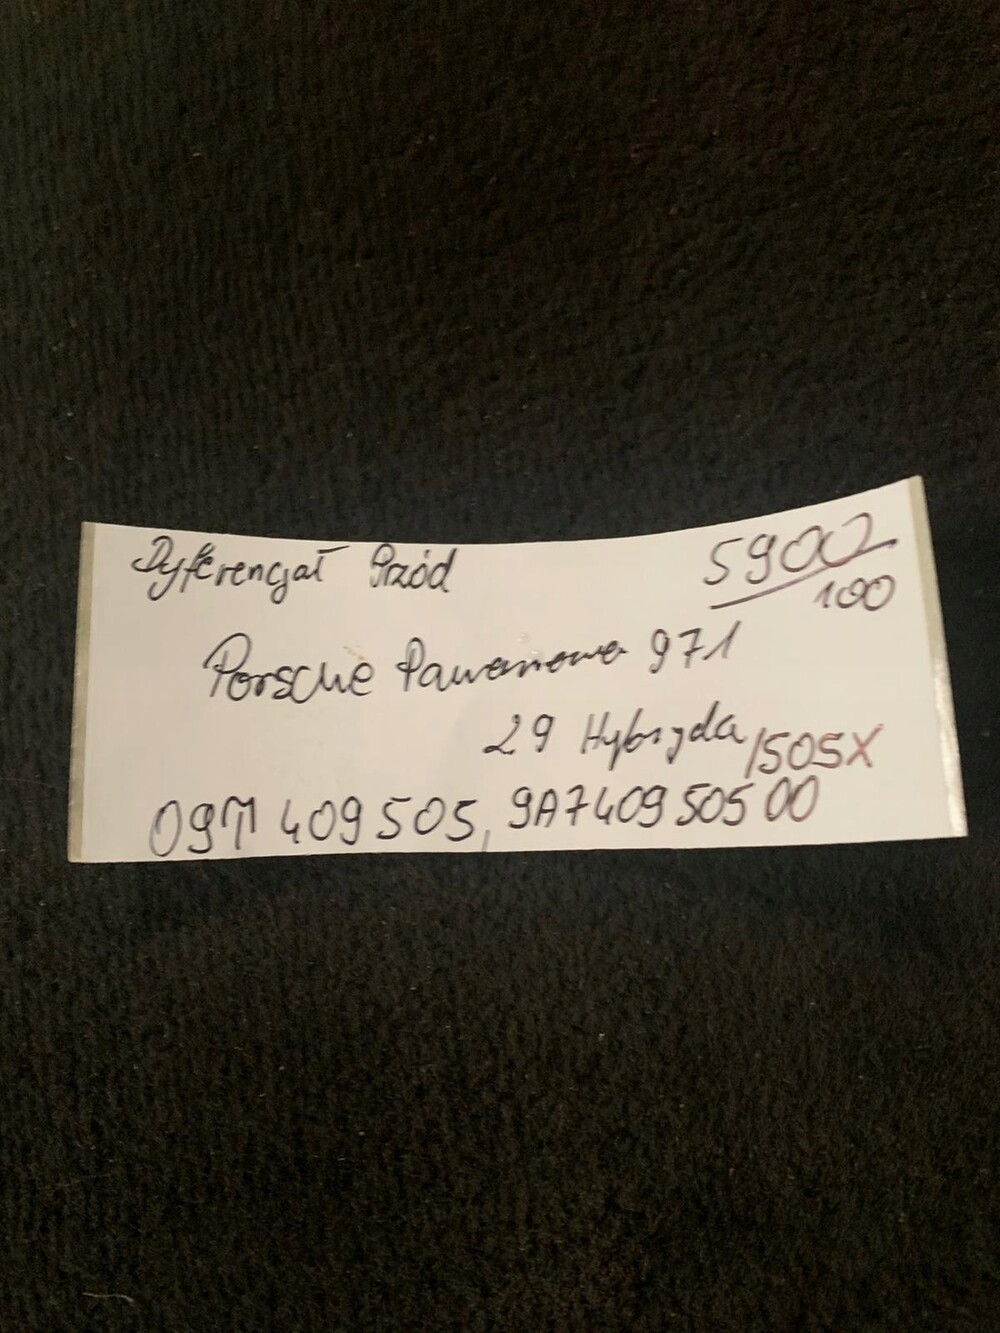 Dyferencjał Przód
5900
100
Porsche Panamera 971
29 Hybryda
1505X
09M 409505, 9A740950500